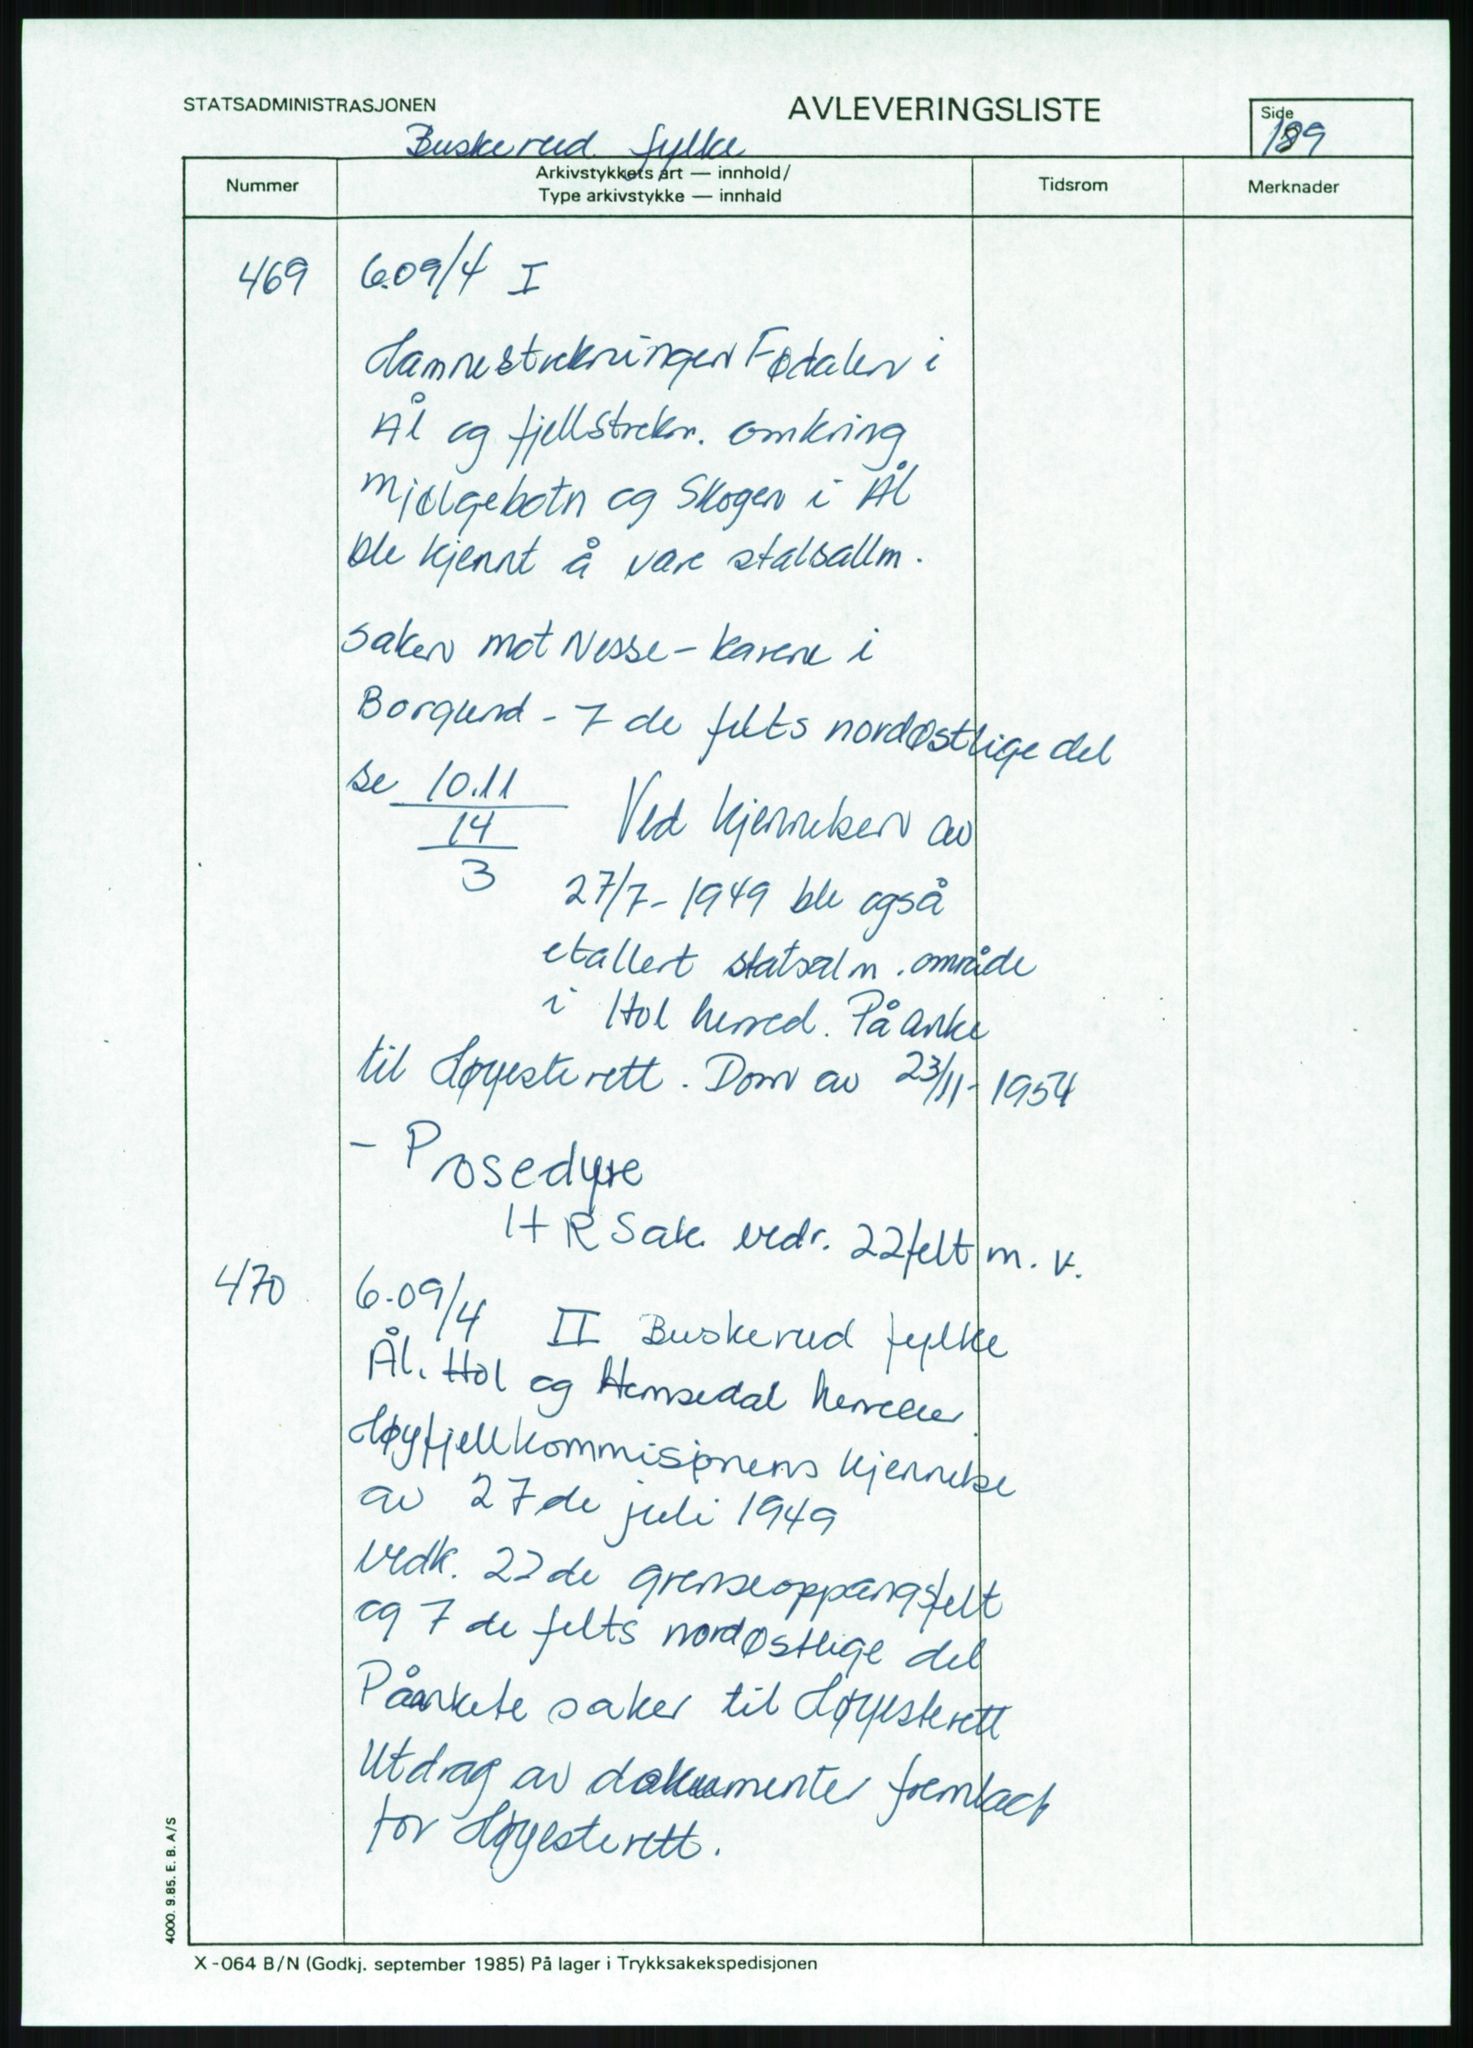 STATSADMINISTRASJONEN
AVLEVERINGSLISTE
Side
189
Buskerud fylke
Nummer
Arkivstykkets art — innhold/
Type arkivstykke — innhald
Tidsrom
Merknader
469 6.09/4 I
Hamnestrekningen Fødalen i
Ål og fjellstrekn. omkring
Mjølgebotn og Skogen i Ål
ble kjennt å være statsallm.
Saken mot Nesse-karene i
Borgund - 7de felts nordøstlige del
se 10.11
14
3
Ved kjennelsen av
27/7-1949 ble også
etallert statsalm. område
i Hol herred. Påanke
til Høyesterett. Dom av 23/11-1954
- Prosedyre
HR Sak vedr. 22 felt m.v.
470 6.09/4 II Buskerud fylke
Ål, Hol og Hemsedal herreder.
Høyfjellkommisjonens kjennelse
av 27de juli 1949
vedk. 22de grenseoppgangsfelt
og 7de felts nordøstlige del
Påankete saker til Høyesterett
Utdrag av dokumenter fremlagt
for Høyesterett.
4000. 9.85. E. B. A/S
X-064 B/N (Godkj. september 1985) På lager i Trykksakekspedisjonen